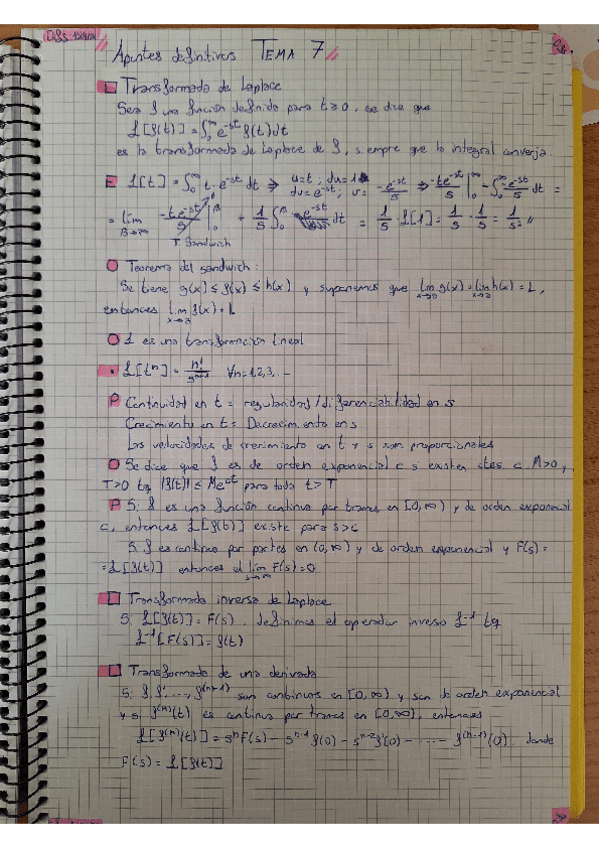 Apuntes definitivos TEMA 7
Transformada de Laplace
Sea f una función definida para t ≥ 0, se dice que
ℒ[f(t)] = ∫₀^∞ e^-st f(t) dt
es la transformada de Laplace de f, siempre que la integral converja.
E ℒ[t] = ∫₀^∞ t · e^-st dt ⇒ u=t ; du=1 dv=e^-st; v= -e^-st/s ⇒ -te^-st/s |₀^∞ - ∫₀^∞ -e^-st/s dt =
= lim B→∞ -te^-st/s |₀^B + 1/s ∫₀^B e^-st dt = 1/s · ℒ[1] = 1/s · 1/s = 1/s² //
T. Sandwich
Teorema del sandwich:
Se tiene g(x) ≤ f(x) ≤ h(x) y suponemos que lim x→a g(x) = lim x→a h(x) = L,
entonces lim x→a f(x) = L
ℒ es una transformación lineal
ℒ[tⁿ] = n!/s^n+1 ∀n=1,2,3,...
P Continuidad en t = regularidad/diferenciabilidad en s
Crecimiento en t = Decrecimiento en s
Las velocidades de crecimiento en t y s son proporcionales
Se dice que f es de orden exponencial c si existen ctes. c, M>0, y
T>0 tq |f(t)| ≤ Me^ct para toda t > T
P Si f es una función continua por tramos en [0,∞) y de orden exponencial
c, entonces ℒ[f(t)] existe para s>c
Si f es continua por partes en (0,∞) y de orden exponencial y F(s) =
= ℒ[f(t)] entonces el lim s→∞ F(s)=0
Transformada inversa de Laplace
Si ℒ[f(t)] = F(s), definimos el operador inverso ℒ⁻¹ tq
ℒ⁻¹[F(s)] = f(t)
Transformada de una derivada
Si f, f', ..., f^(n-1) son continuas en [0,∞) y son de orden exponencial
y si f^(n)(t) es continua por tramos en [0,∞), entonces
ℒ[f^(n)(t)] = sⁿF(s) - s^n-1 f(0) - s^n-2 f'(0) - ... - f^(n-1)(0). donde
F(s) = ℒ[f(t)]